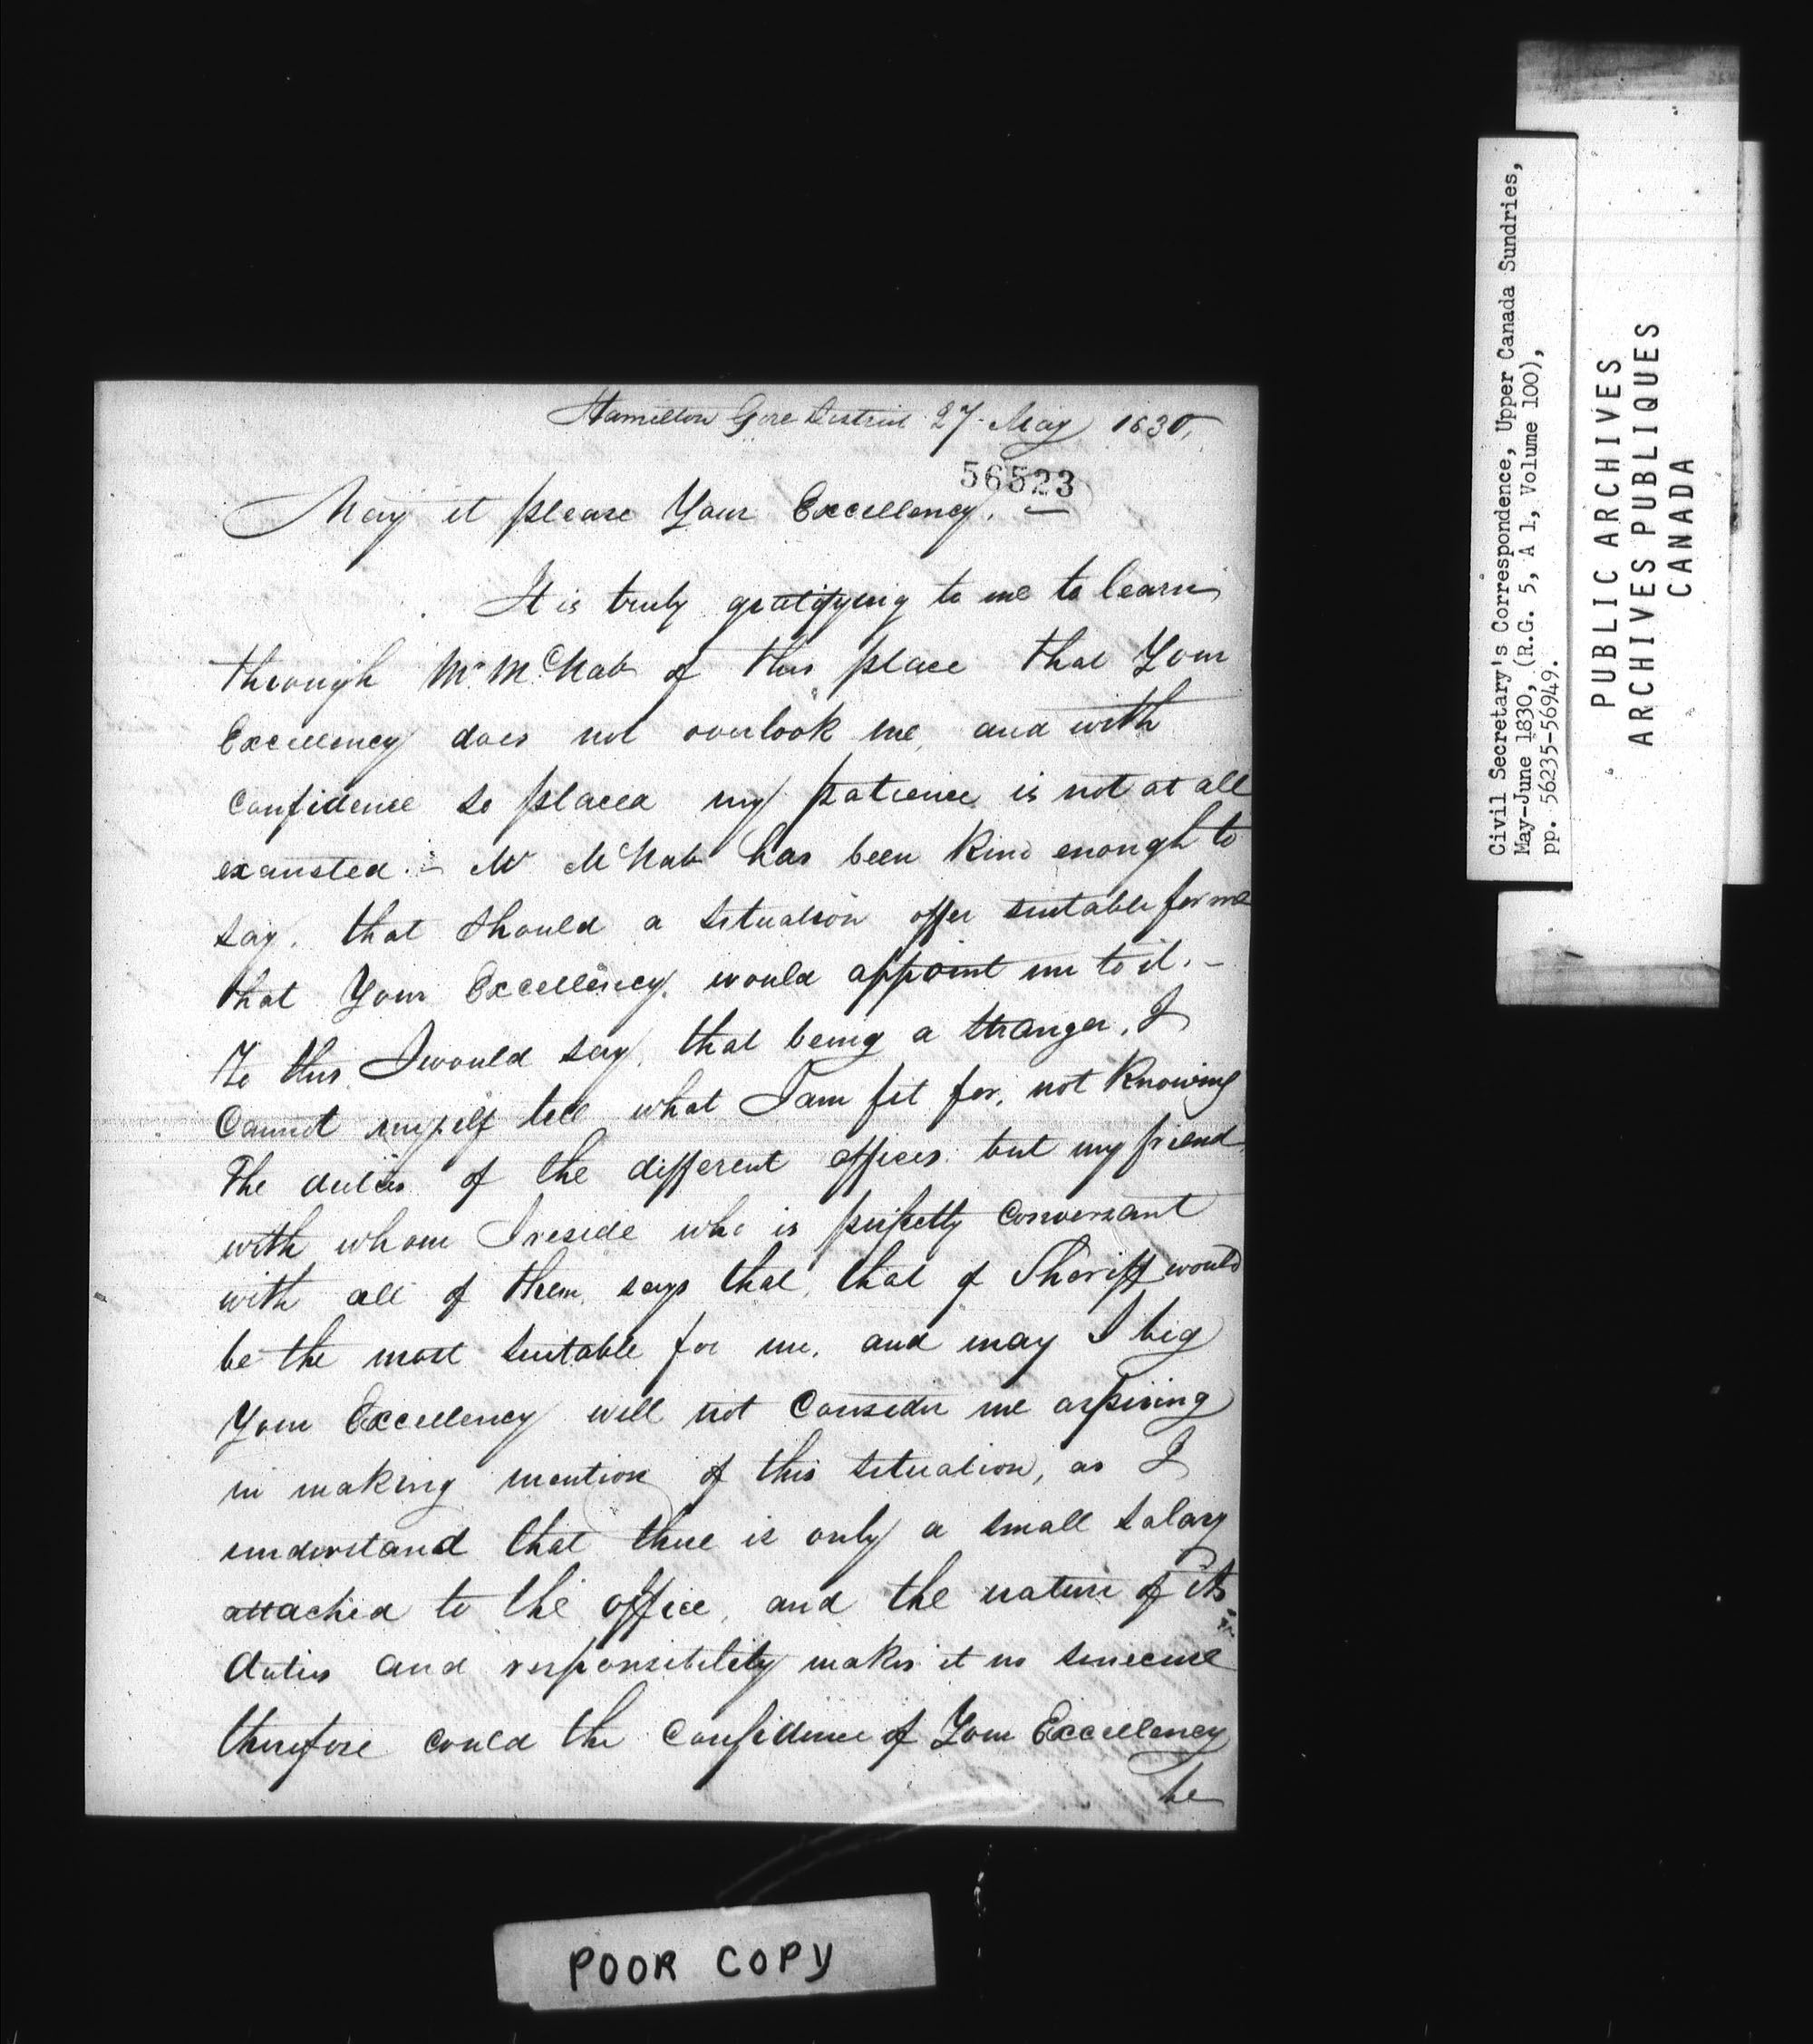 Hamilton Gore District 27 May 1830,
56523
May it please Your Excellency. —
It is truly gratifying to me to learn
through Mr McNab of this place that Your
Excellency does not overlook me, and with
confidence so placed my patience is not at all
exausted. – Mr McNab has been kind enough to
say, that should a situation offer suitable for me
that Your Excellency would appoint me to it. –
To this I would say, that being a stranger, I
Cannot myself tell what I am fit for, not knowing
The duties of the different offices but my friend
with whom I reside who is perfectly conversant
with all of them, says that, that of Sheriff would
be the most suitable for me, and may I beg
Your Excellency will not consider me aspiring
in making mention of this situation, as I
understand that there is only a small salary
attached to the office, and the nature of its
duties and responsibility makes it no sinecure
therefore could the confidence of Your Excellency
be
POOR COPY
Civil Secretary's Correspondence, Upper Canada Sundries,
May-June 1830, (R.G. 5, A 1, Volume 100),
pp. 56235-56949.
PUBLIC ARCHIVES
ARCHIVES PUBLIQUES
CANADA